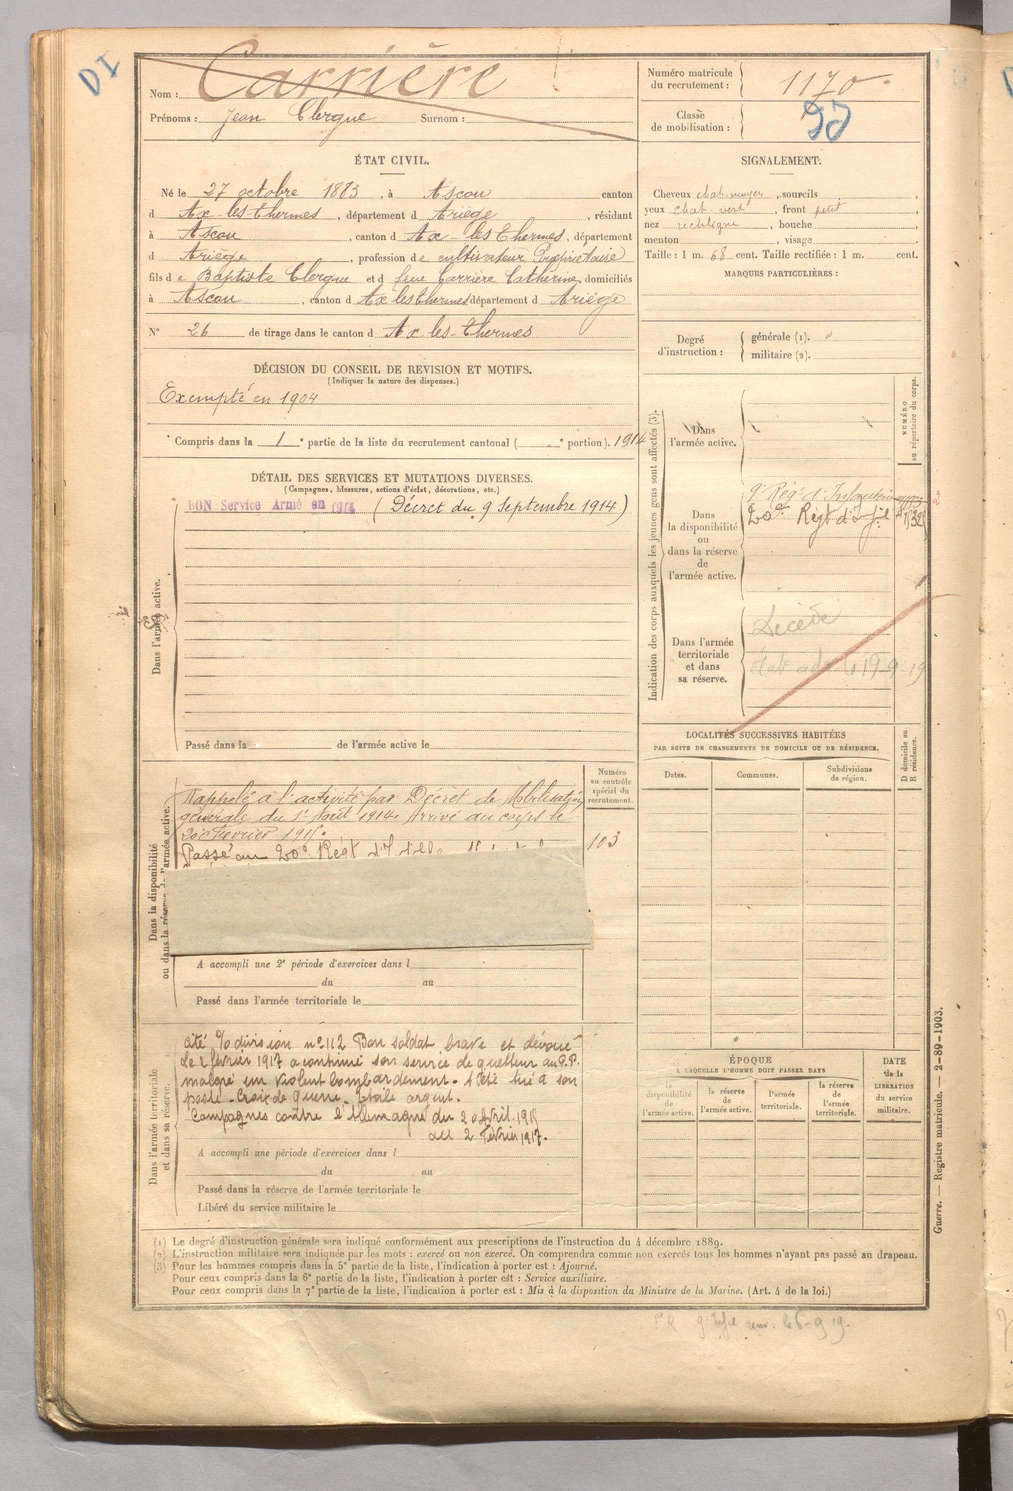 DI
Nom : Carrière
Prénoms : Jean Clergue Surnom :
Numéro matricule du recrutement : 1170
Classe de mobilisation :
ÉTAT CIVIL.
Né le 27 octobre 1883, à Ascou canton
d Ax-les-Thermes, département d Ariège, résidant
à Ascou, canton d Ax-les Thermes, département
d Ariège, profession de cultivateur Propriétaire
fils d e Baptiste Clergue et d feue Carrière Catherine, domiciliés
à Ascou, canton d Ax les Thermes département d Ariège
N° 26 de tirage dans le canton d Ax-les-Thermes
SIGNALEMENT.
Cheveux chat. moyen, sourcils ,
yeux chat. vert, front petit,
nez rectiligne, bouche ,
menton , visage .
Taille : 1 m. 68 cent. Taille rectifiée : 1 m. cent.
MARQUES PARTICULIÈRES :
DÉCISION DU CONSEIL DE REVISION ET MOTIFS.
(Indiquer la nature des dispenses.)
Exempté en 1904
Compris dans la 1e partie de la liste du recrutement cantonal ( e portion). 1914
Degré d'instruction : générale (1).
militaire (2).
DÉTAIL DES SERVICES ET MUTATIONS DIVERSES.
(Campagnes, blessures, actions d'éclat, décorations, etc.)
BON Service Armé en 1914 (Décret du 9 Septembre 1914)
Dans l'armée active.
Passé dans la de l'armée active le
Indication des corps auxquels les jeunes gens sont affectés (3).
NUMÉRO au répertoire du corps.
Dans l'armée active.
Dans la disponibilité ou dans la réserve de l'armée active.
9e Rég' d'Infanterie
20e Régt d'Inf
Dans l'armée territoriale et dans sa réserve.
Décédé
19-9-19
LOCALITÉS SUCCESSIVES HABITÉES
PAR SUITE DE CHANGEMENTS DE DOMICILE OU DE RÉSIDENCE.
D domicile ou R résidence.
Dates. Communes. Subdivisions de région.
Dans la disponibilité ou dans la réserve de l'armée active.
Numéro au contrôle spécial du recrutement.
Rappelé à l'activité par Décret de Mobilisation
générale du 1er Août 1914. Arrivé au corps le
février 191
103
Passé au 20e Régt
A accompli une 2e période d'exercices dans l
du au
Passé dans l'armée territoriale le
Dans l'armée territoriale et dans sa réserve.
Cité % division n° 112 Bon soldat brave et dévoué
Le 2 février 1917 a continué son service de guetteur au P.P.
malgré un violent bombardement. A été tué à son
poste. Croix de Guerre. Etoile argent.
Campagnes contre l'Allemagne du 20 Avril 191
au 2 février 1917.
A accompli une période d'exercices dans l
du au
Passé dans la réserve de l'armée territoriale le
Libéré du service militaire le
ÉPOQUE
A LAQUELLE L'HOMME DOIT PASSER DANS
la disponibilité de l'armée active.
la réserve de l'armée active.
l'armée territoriale.
la réserve de l'armée territoriale.
DATE de la LIBÉRATION du service militaire.
Guerre. — Registre matricule. — 2-89-1903.
(1) Le degré d'instruction générale sera indiqué conformément aux prescriptions de l'instruction du 4 décembre 1889.
(2) L'instruction militaire sera indiquée par les mots : exercé ou non exercé. On comprendra comme non exercés tous les hommes n'ayant pas passé au drapeau.
(3) Pour les hommes compris dans la 5e partie de la liste, l'indication à porter est : Ajourné.
Pour ceux compris dans la 6e partie de la liste, l'indication à porter est : Service auxiliaire.
Pour ceux compris dans la 7e partie de la liste, l'indication à porter est : Mis à la disposition du Ministre de la Marine. (Art. 4 de la loi.)